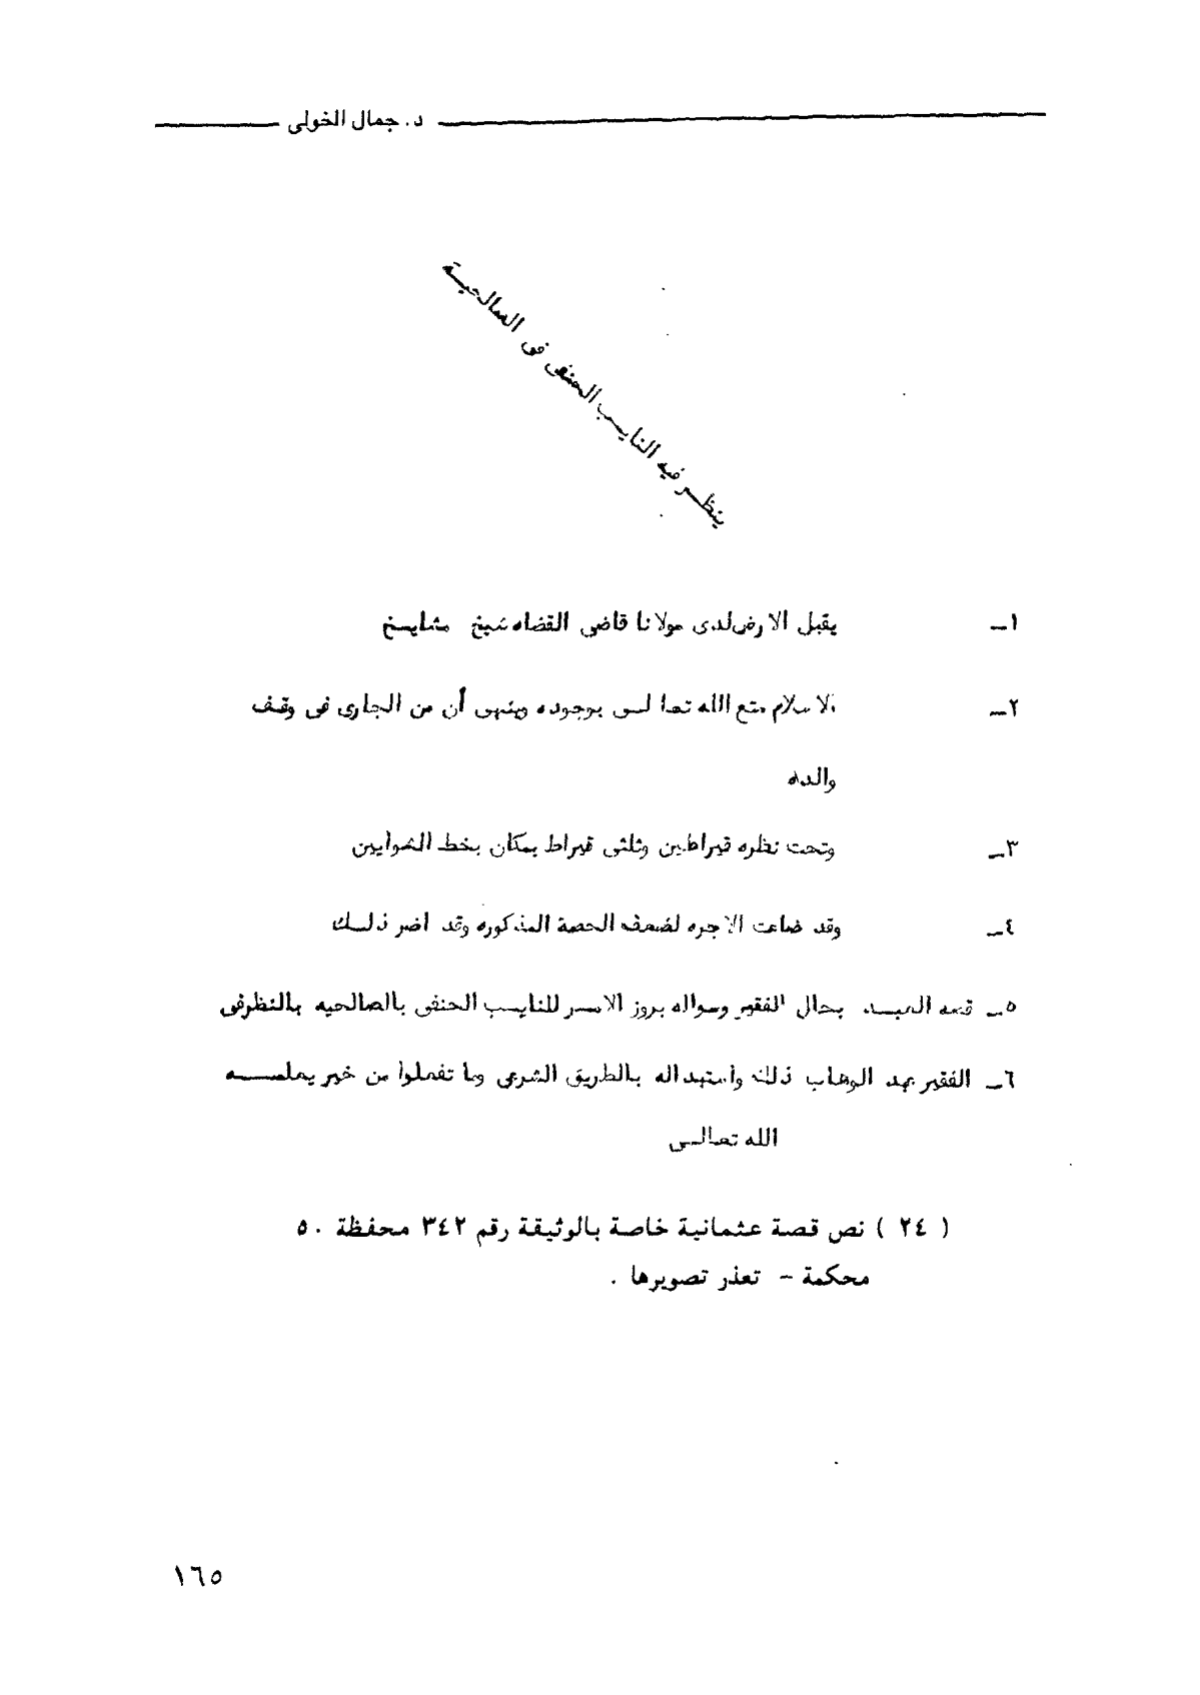 د. جمال الخولى
ينظر فيه النايب الحنفى فى الصالحية
١ــ يقبل الارض لدى مولانا قاضى القضاه شيخ مشايخ
٢ــ الاسلام متع الله تعالى بوجوده وينهى أن من الجارى فى وقف
والده
٣ــ وتحت نظره قيراطين وثلثى قيراط بمكان بخط الشوايين
٤ــ وقد ضاعت الاجره لضعف الحصة المذكوره وقد اضر ذلك
٥ــ بحال الفقير وسواله بروز الامر للنايب الحنفى بالصالحيه بالنظرفى
٦ــ الفقير عبد الوهاب ذلك واستبداله بالطريق الشرعى وما تفعلوا من خير يعلمه
الله تعالى
( ٢٤ ) نص قصة عثمانية خاصة بالوثيقة رقم ٣٤٢ محفظة ٥٠
محكمة - تعذر تصويرها .
١٦٥